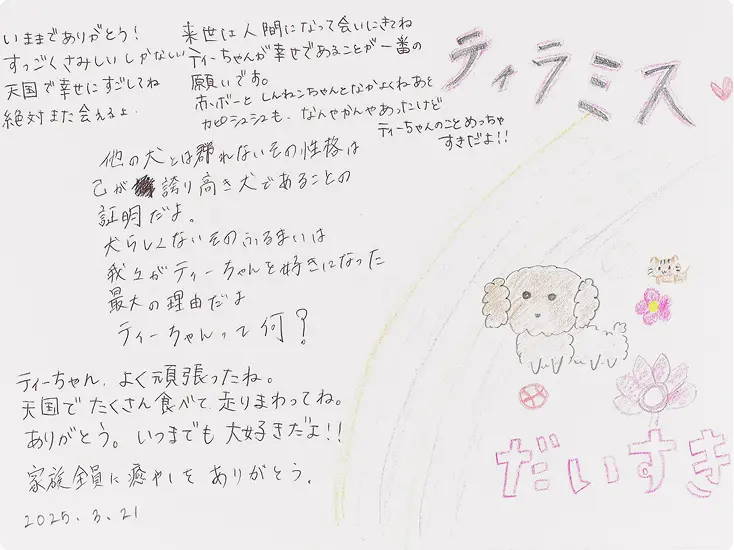 いままでありがとう！
すっごくさみしいしかない
天国で幸せにすごしてね
絶対また会えるよ.
来世は人間になって会いにきてね
ティーちゃんが幸せであることが一番の
願いです。
赤ボーとしんねこちゃんとなかよくねあと
カピシュシュも、なんやかんやあったけど
ティーちゃんのことめっちゃ
すきだよ!!
ティラミス
他の犬とは群れないその性格は
己が誇り高き犬であることの
証明だよ。
犬らしくないそのふるまいは
我々がティーちゃんを好きになった
最大の理由だよ
ティーちゃんって何？
ティーちゃん、よく頑張ったね。
天国でたくさん食べて、走りまわってね。
ありがとう。いつまでも大好きだよ!!
家族全員に癒やしをありがとう。
2025.3.21
だいすき